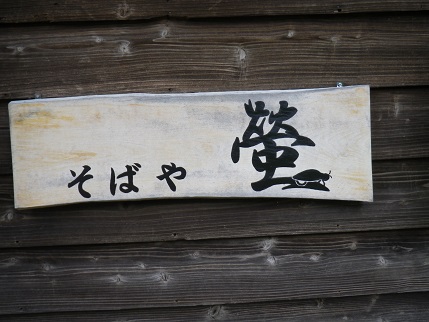 そばや 螢